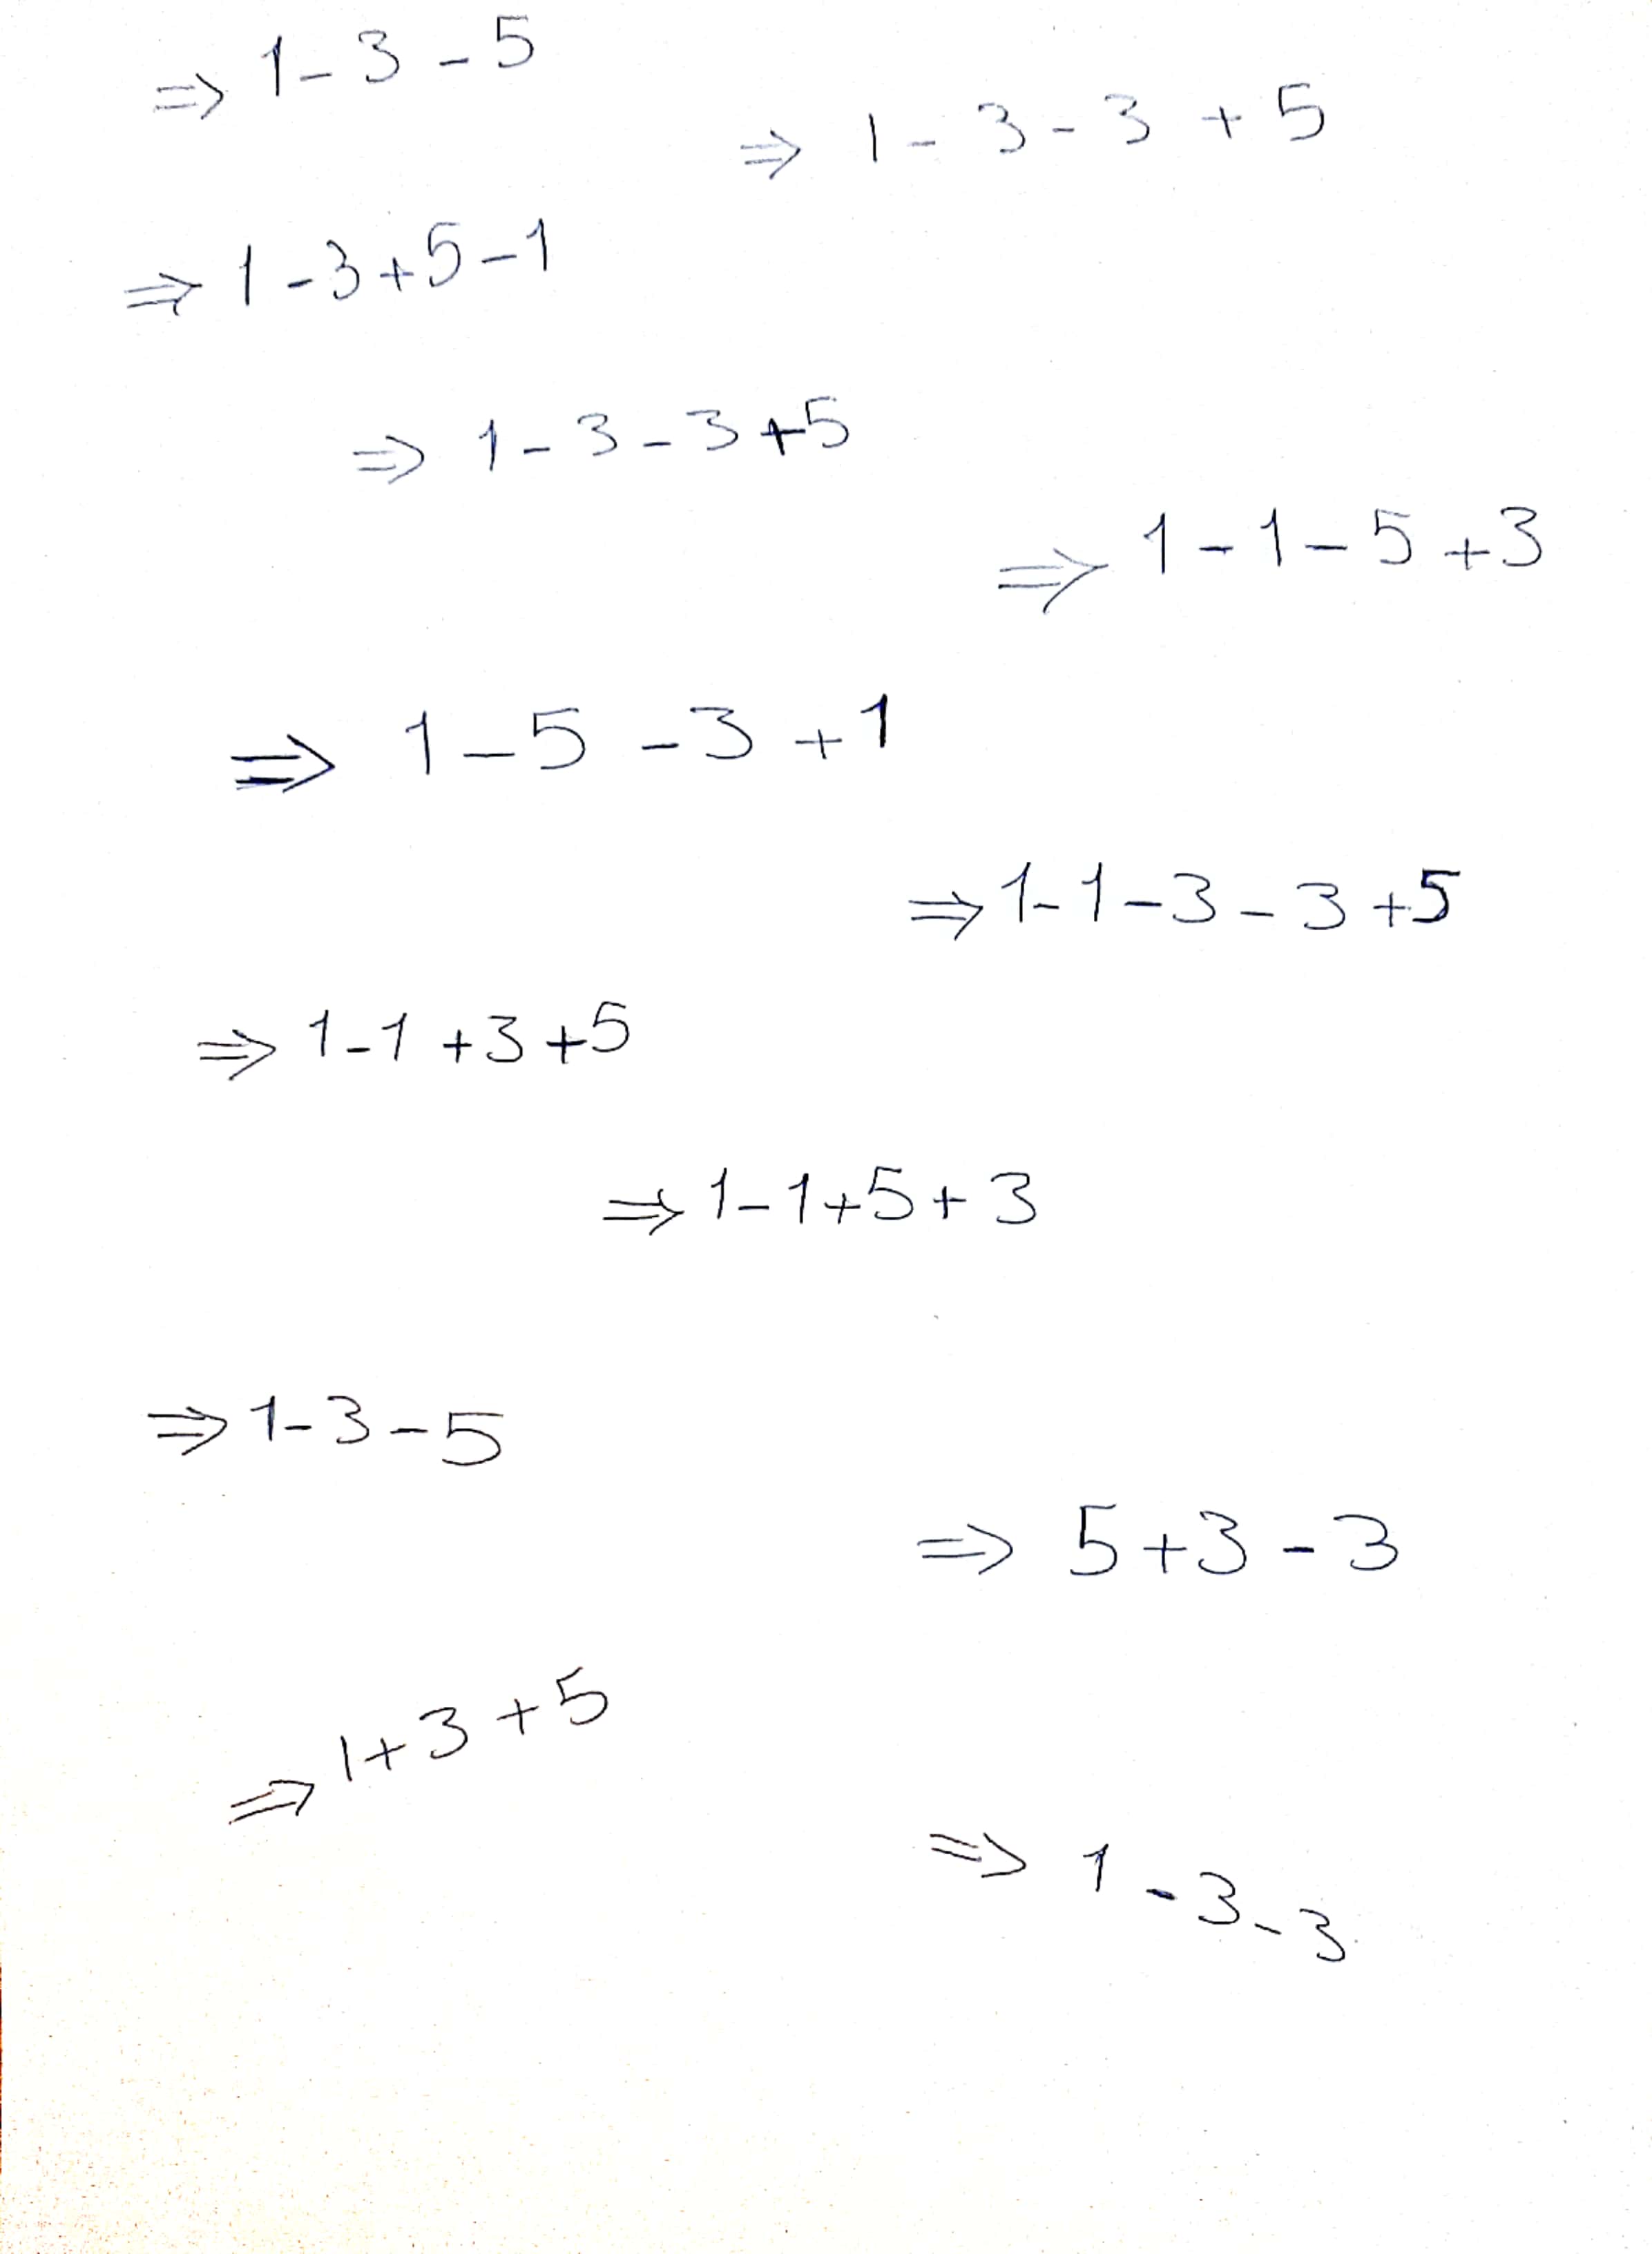 ⇒ 1 - 3 - 5
⇒ 1 - 3 - 3 + 5
⇒ 1 - 3 + 5 - 1
⇒ 1 - 3 - 3 + 5
⇒ 1 - 1 - 5 + 3
⇒ 1 - 5 - 3 + 1
⇒ 1 - 1 - 3 - 3 + 5
⇒ 1 - 1 + 3 + 5
⇒ 1 - 1 + 5 + 3
⇒ 1 - 3 - 5
⇒ 5 + 3 - 3
⇒ 1 + 3 + 5
⇒ 1 - 3 - 3